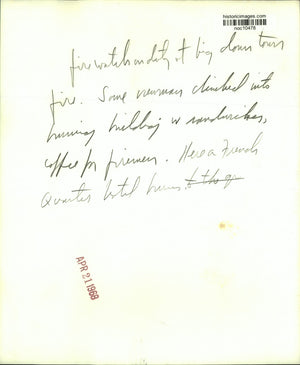 historicimages.com
noc10478
at big down town
fire. Some newsmen climbed into
burning building w sandwiches,
coffee for firemen. Here a French
Quarter hotel burns
APR 21 1968